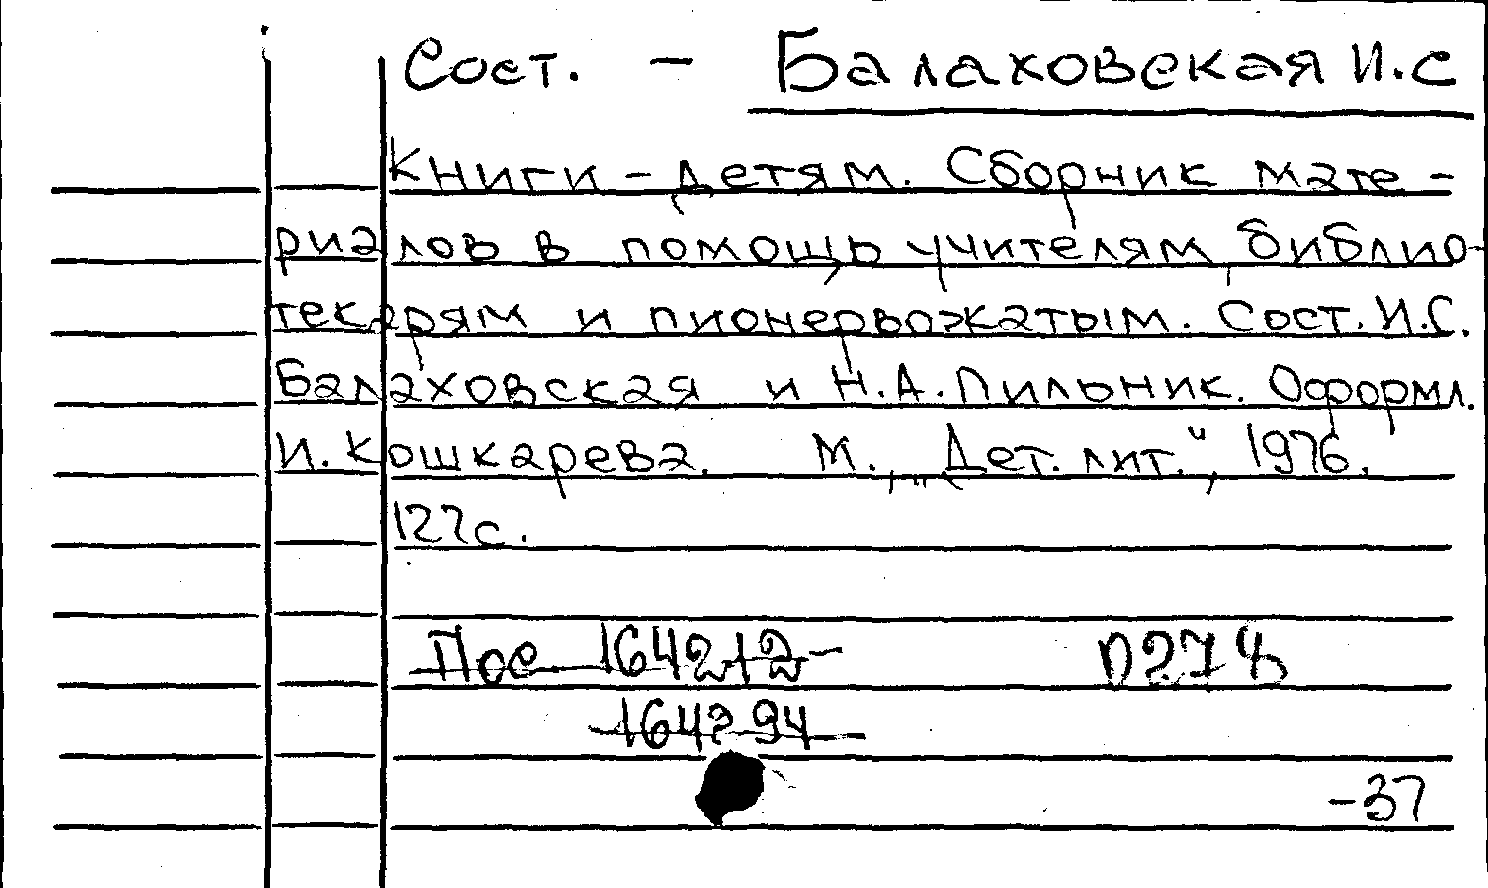 Сост. - Балаховская И.С
Книги - детям. Сборник мате-
риалов в помощь учителям, библио-
текарям и пионервожатым. Сост. И.С.
Балаховская и Н.А. Пильник. Оформл.
И. Кошкарева. М., „Дет. лит.", 1976.
127с.
Пос. 164212-
164294
-37